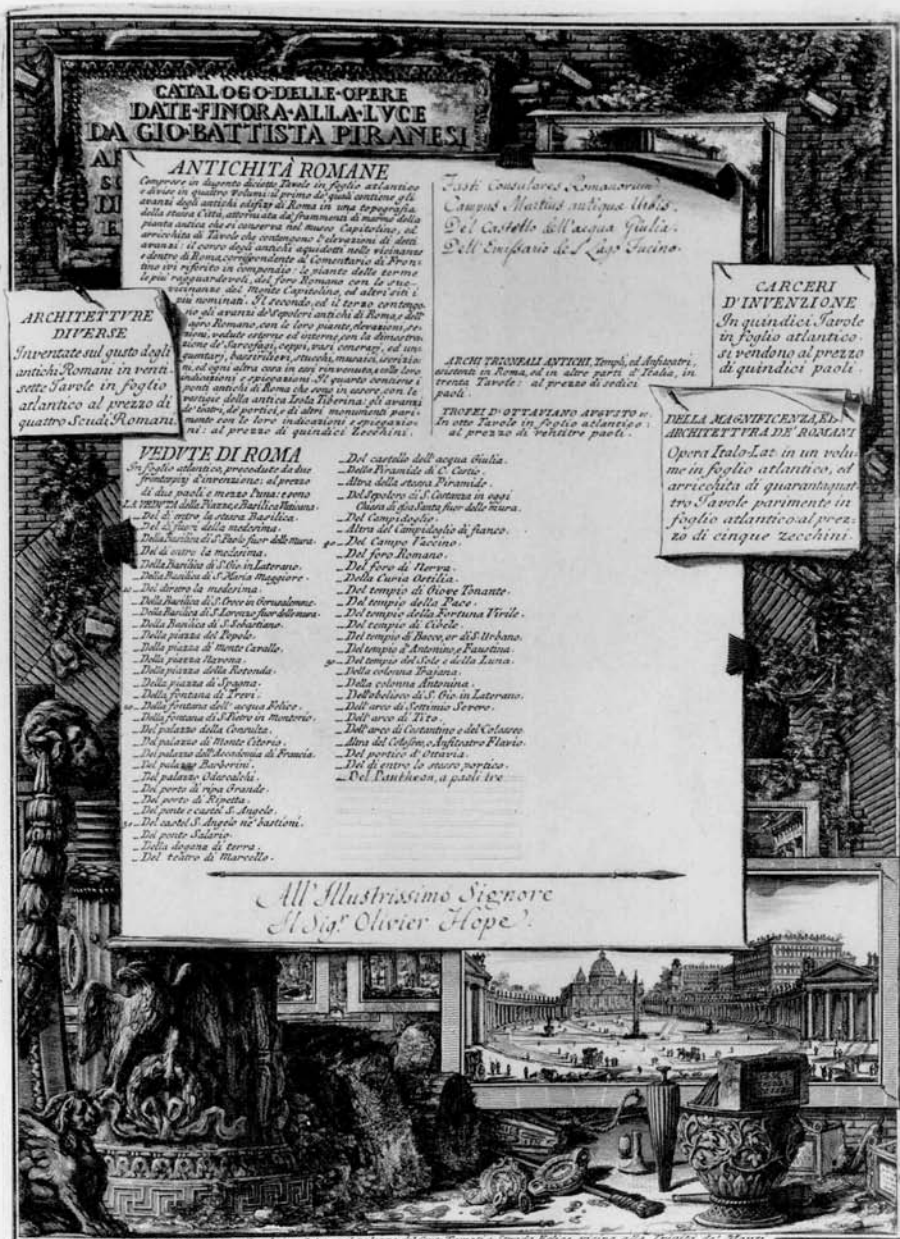 CATALOGO·DELLE·OPERE
DATE·FINORA·ALLA·LVCE
DA GIO·BATTISTA PIRANESI
ANTICHITÀ ROMANE
Comprese in dugento diciotto Tavole in foglio atlantico
e divise in quattro volumi: il primo de' quali contiene gli
avanzi degli antichi edifizj di Roma in una topografia
della stessa Città, attorniata da' frammenti di marmo della
pianta antica che si conserva nel museo Capitolino, ed
arricchita di Tavole che contengono l'elevazioni di detti
avanzi: il corso degli antichi aquidotti nelle vicinanze
e dentro di Roma, corrispondente al Comentario di Fron-
tino ivi riferito in compendio: le piante delle terme
le più ragguardevoli, del foro Romano con le sue
vicinanze del Monte Capitolino, ed altri siti i
più nominati. Il secondo, ed il terzo contengo-
no gli avanzi de' Sepolcri antichi di Roma, e dell'
agro Romano, con le loro piante, elevazioni, se-
zioni, vedute esterne ed interne, con la dimostra-
zione de' Sarcofagi, ceppi, vasi cenerarj, ed un-
guentarj, bassirilievi, stucchi, musaici, iscrizio-
ni, ed ogni altra cosa in essi rinvenuta, colle loro
indicazioni e spiegazioni. Il quarto contiene i
ponti antichi di Roma che sono in essere, con le
vestigie della antica Isola Tiberina: gli avanzi
de' teatri, de' portici, e di altri monumenti pari-
mente con le loro indicazioni e spiegazio-
ni: al prezzo di quindici Zecchini.
Fasti Consulares Romanorum.
Campus Martius antiquæ Urbis.
Del Castello dell'acqua Giulia.
Dell'Emissario del Lago Fucino.
ARCHI TRIONFALI ANTICHI, Templi, ed Anfiteatri,
esistenti in Roma, ed in altre parti d'Italia, in
trenta Tavole: al prezzo di sedici
paoli.
TROFEI D'OTTAVIANO AVGVSTO
In otto Tavole in foglio atlantico:
al prezzo di ventitre paoli.
ARCHITETTVRE
DIVERSE
Inventate sul gusto degli
antichi Romani in venti-
sette Tavole in foglio
atlantico al prezzo di
quattro Scudi Romani.
CARCERI
D'INVENZIONE
In quindici Tavole
in foglio atlantico
si vendono al prezzo
di quindici paoli.
DELLA MAGNIFICENZA, ED
ARCHITETTVRA DE' ROMANI
Opera Italo-Lat. in un volu-
me in foglio atlantico, ed
arricchita di quarantaquat-
tro Tavole parimente in
foglio atlantico al prez-
zo di cinque zecchini.
VEDUTE DI ROMA
In foglio atlantico, precedute da due
frontespizj d'invenzione: al prezzo
di due paoli e mezzo l'una: e sono
LA VEDUTA della Piazza, e Basilica Vaticana.
_Del di entro la stessa Basilica.
_Del di fuori della medesima.
_Della Basilica di S. Paolo fuor delle mura.
_Del di entro la medesima.
_Della Basilica di S. Gio. in Laterano.
_Della Basilica di S. Maria Maggiore.
_Del dietro la medesima.
_Della Basilica di S. Croce in Gerusalemme.
_Della Basilica di S. Lorenzo fuor delle mura.
_Della Basilica di S. Sebastiano.
_Della piazza del Popolo.
_Della piazza di Monte Cavallo.
_Della piazza Navona.
_Della piazza della Rotonda.
_Della piazza di Spagna.
_Della fontana di Trevi.
20_Della fontana dell'acqua Felice.
_Della fontana di S. Pietro in Montorio.
_Del palazzo della Consulta.
_Del palazzo di Monte Citorio.
_Del palazzo dell'Accademia di Francia.
_Del palazzo Barberini.
_Del palazzo Odescalchi.
_Del porto di ripa Grande.
_Del porto di Ripetta.
_Del ponte e castel S. Angelo.
30_Del castel S. Angelo ne' bastioni.
_Del ponte Salario.
_Della dogana di terra.
_Del teatro di Marcello.
_Del castello dell'acqua Giulia.
_Della Piramide di C. Cestio.
_Altra della stessa Piramide.
_Del Sepolcro di S. Costanza in oggi
Chiesa di essa Santa fuor delle mura.
_Del Campidoglio.
_Altra del Campidoglio di fianco.
40_Del Campo Vaccino.
_Del foro Romano.
_Del foro di Nerva.
_Della Curia Ostilia.
_Del tempio di Giove Tonante.
_Del tempio della Pace.
_Del tempio della Fortuna Virile.
_Del tempio di Cibele.
_Del tempio di Bacco, or di S. Urbano.
_Del tempio d'Antonino, e Faustina.
50_Del tempio del Sole e della Luna.
_Della colonna Trajana.
_Della colonna Antonina.
_Dell'obelisco di S. Gio. in Laterano.
_Dell'arco di Settimio Severo.
_Dell'arco di Tito.
_Dell'arco di Costantino e del Colosseo.
_Altra del Colosseo, o Anfiteatro Flavio.
_Del portico d'Ottavia.
_Del di entro lo stesso portico.
_Del Pantheon, a paoli tre
All'Illustrissimo Signore
Il Sig.r Olivier Hope.